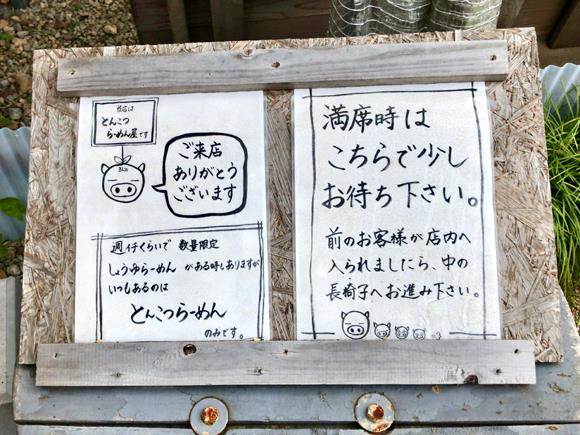 当店は
とんこつ
らーめん屋です
ご来店
ありがとう
ございます
週1くらいで 数量限定
しょうゆらーめん がある時もありますが
いつもあるのは
とんこつらーめん
のみです。
満席時は
こちらで少し
お待ち下さい。
前のお客様が店内へ
入られましたら、中の
長椅子へお進み下さい。